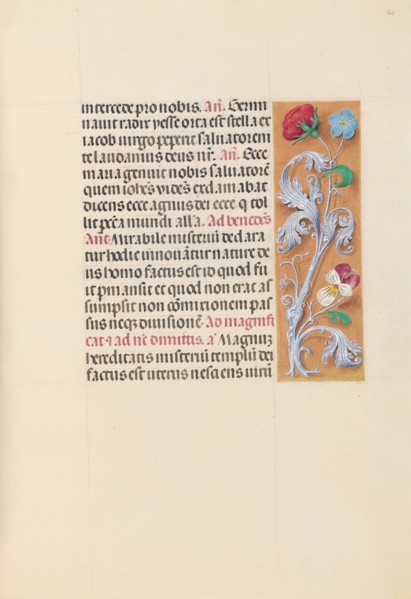 intercede pro nobis. An̄. Germi
nauit radix yesse orta est stella ex
iacob uirgo peperit saluatorem
te laudamus deus nr̄. An̄. Ecce
maria genuit nobis saluatorē
quem iohēs vidēs exclamabat
dicens ecce agnus dei ecce q̄ tol
lit pccā mundi allā. Ad benedēs
Anē. Mirabile misteriū declara
tur hodie innouātur nature de
us homo factus est id quod fu
it pmansit et quod non erat as
sumpsit non cōmixtionem pas
sus neq; diuisionē. Ad magnifi
cat ⁊ ad nc̄ dimittis. ā Magnū
hereditatis misteriū templū dei
factus est uterus nesciens uirū